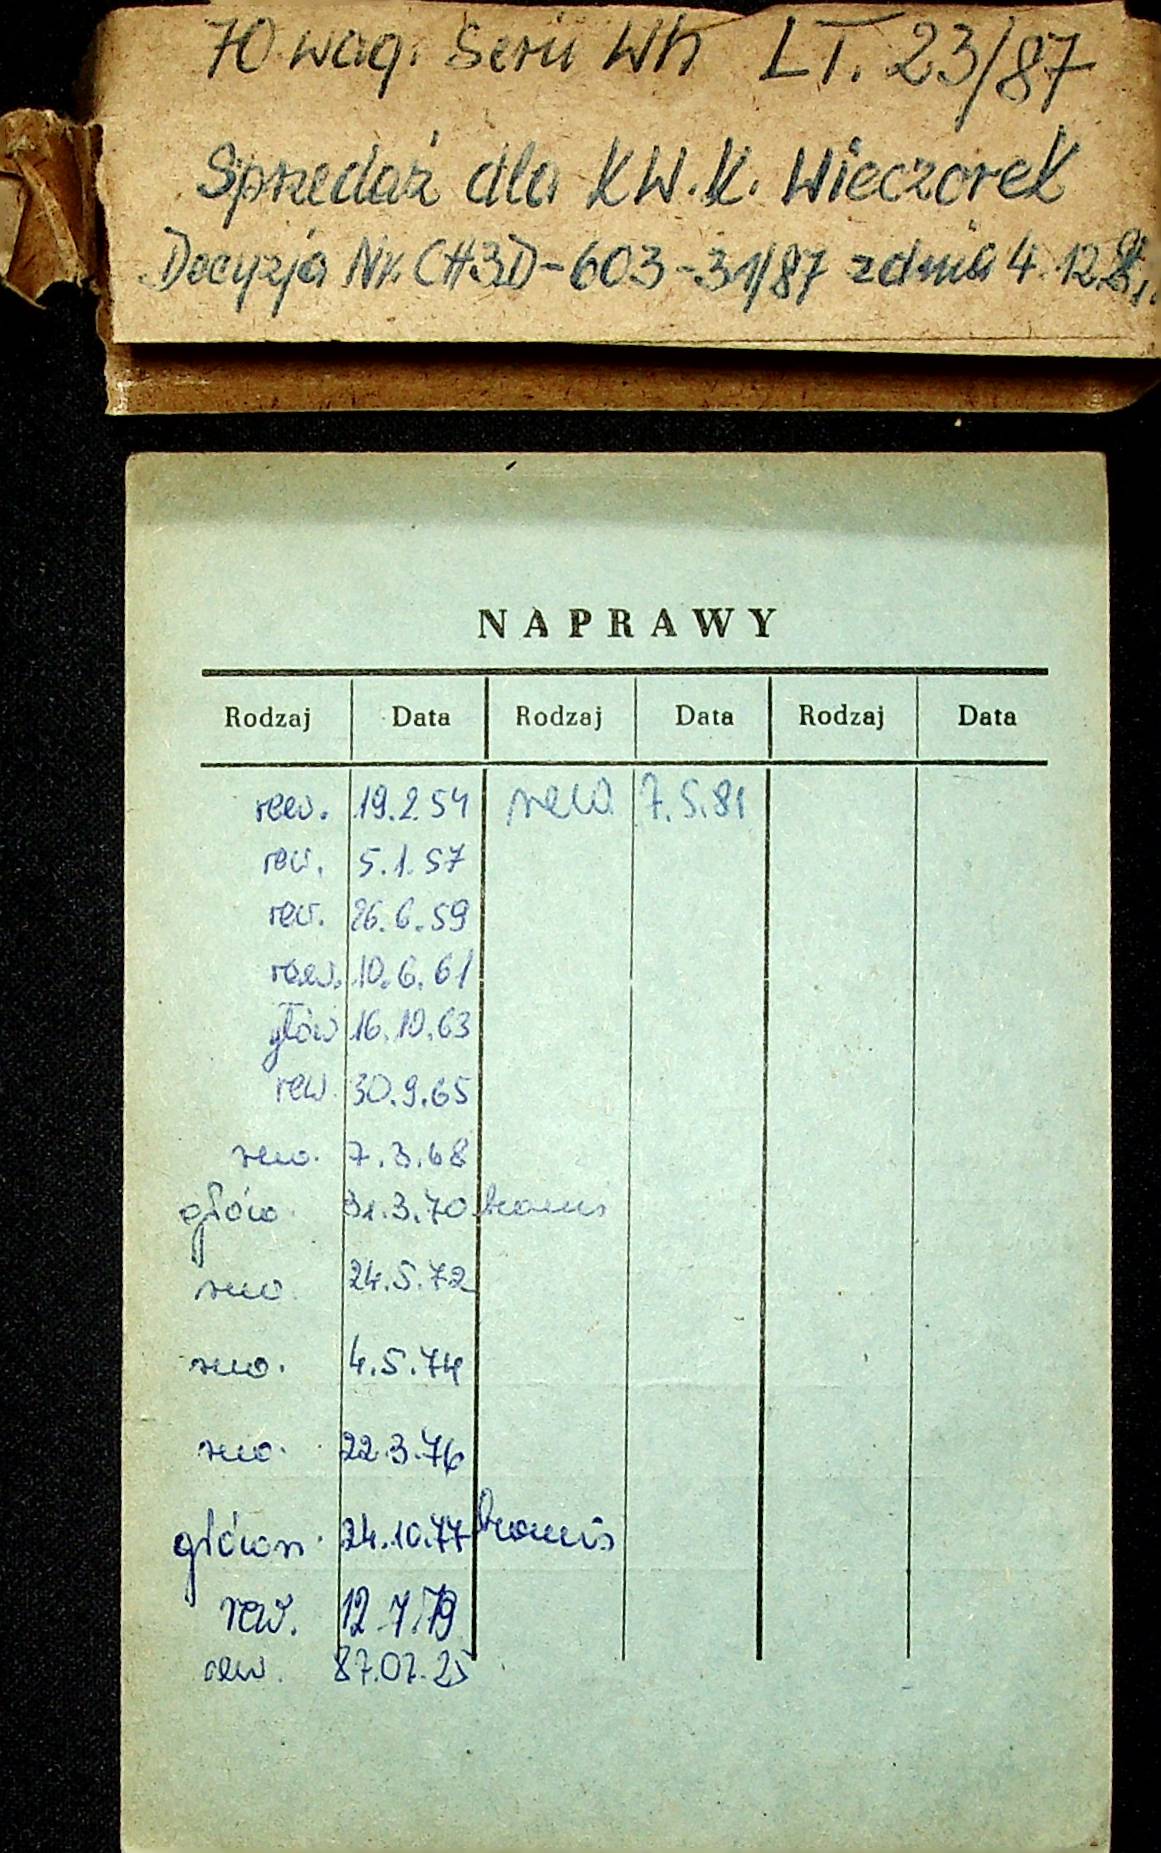 70 wag. Serii Wh LT. 23/87
Sprzedaż dla KW.K. Wieczorek
Decyzja Nr. CH3D-603-31/87 z dnia 4.12.
NAPRAWY
Rodzaj Data Rodzaj Data Rodzaj Data
rew. 19.2.54 rew. 7.5.81
rew. 5.1.57
rew. 26.6.59
rew. 10.6.61
głów 16.10.63
rew. 30.9.65
rew. 7.3.68
głów 31.3.70
rew. 24.5.72
rew. 4.5.74
rew. 22.3.76
główn. 24.10.77
rew. 12.7.79
rew. 87.07.25